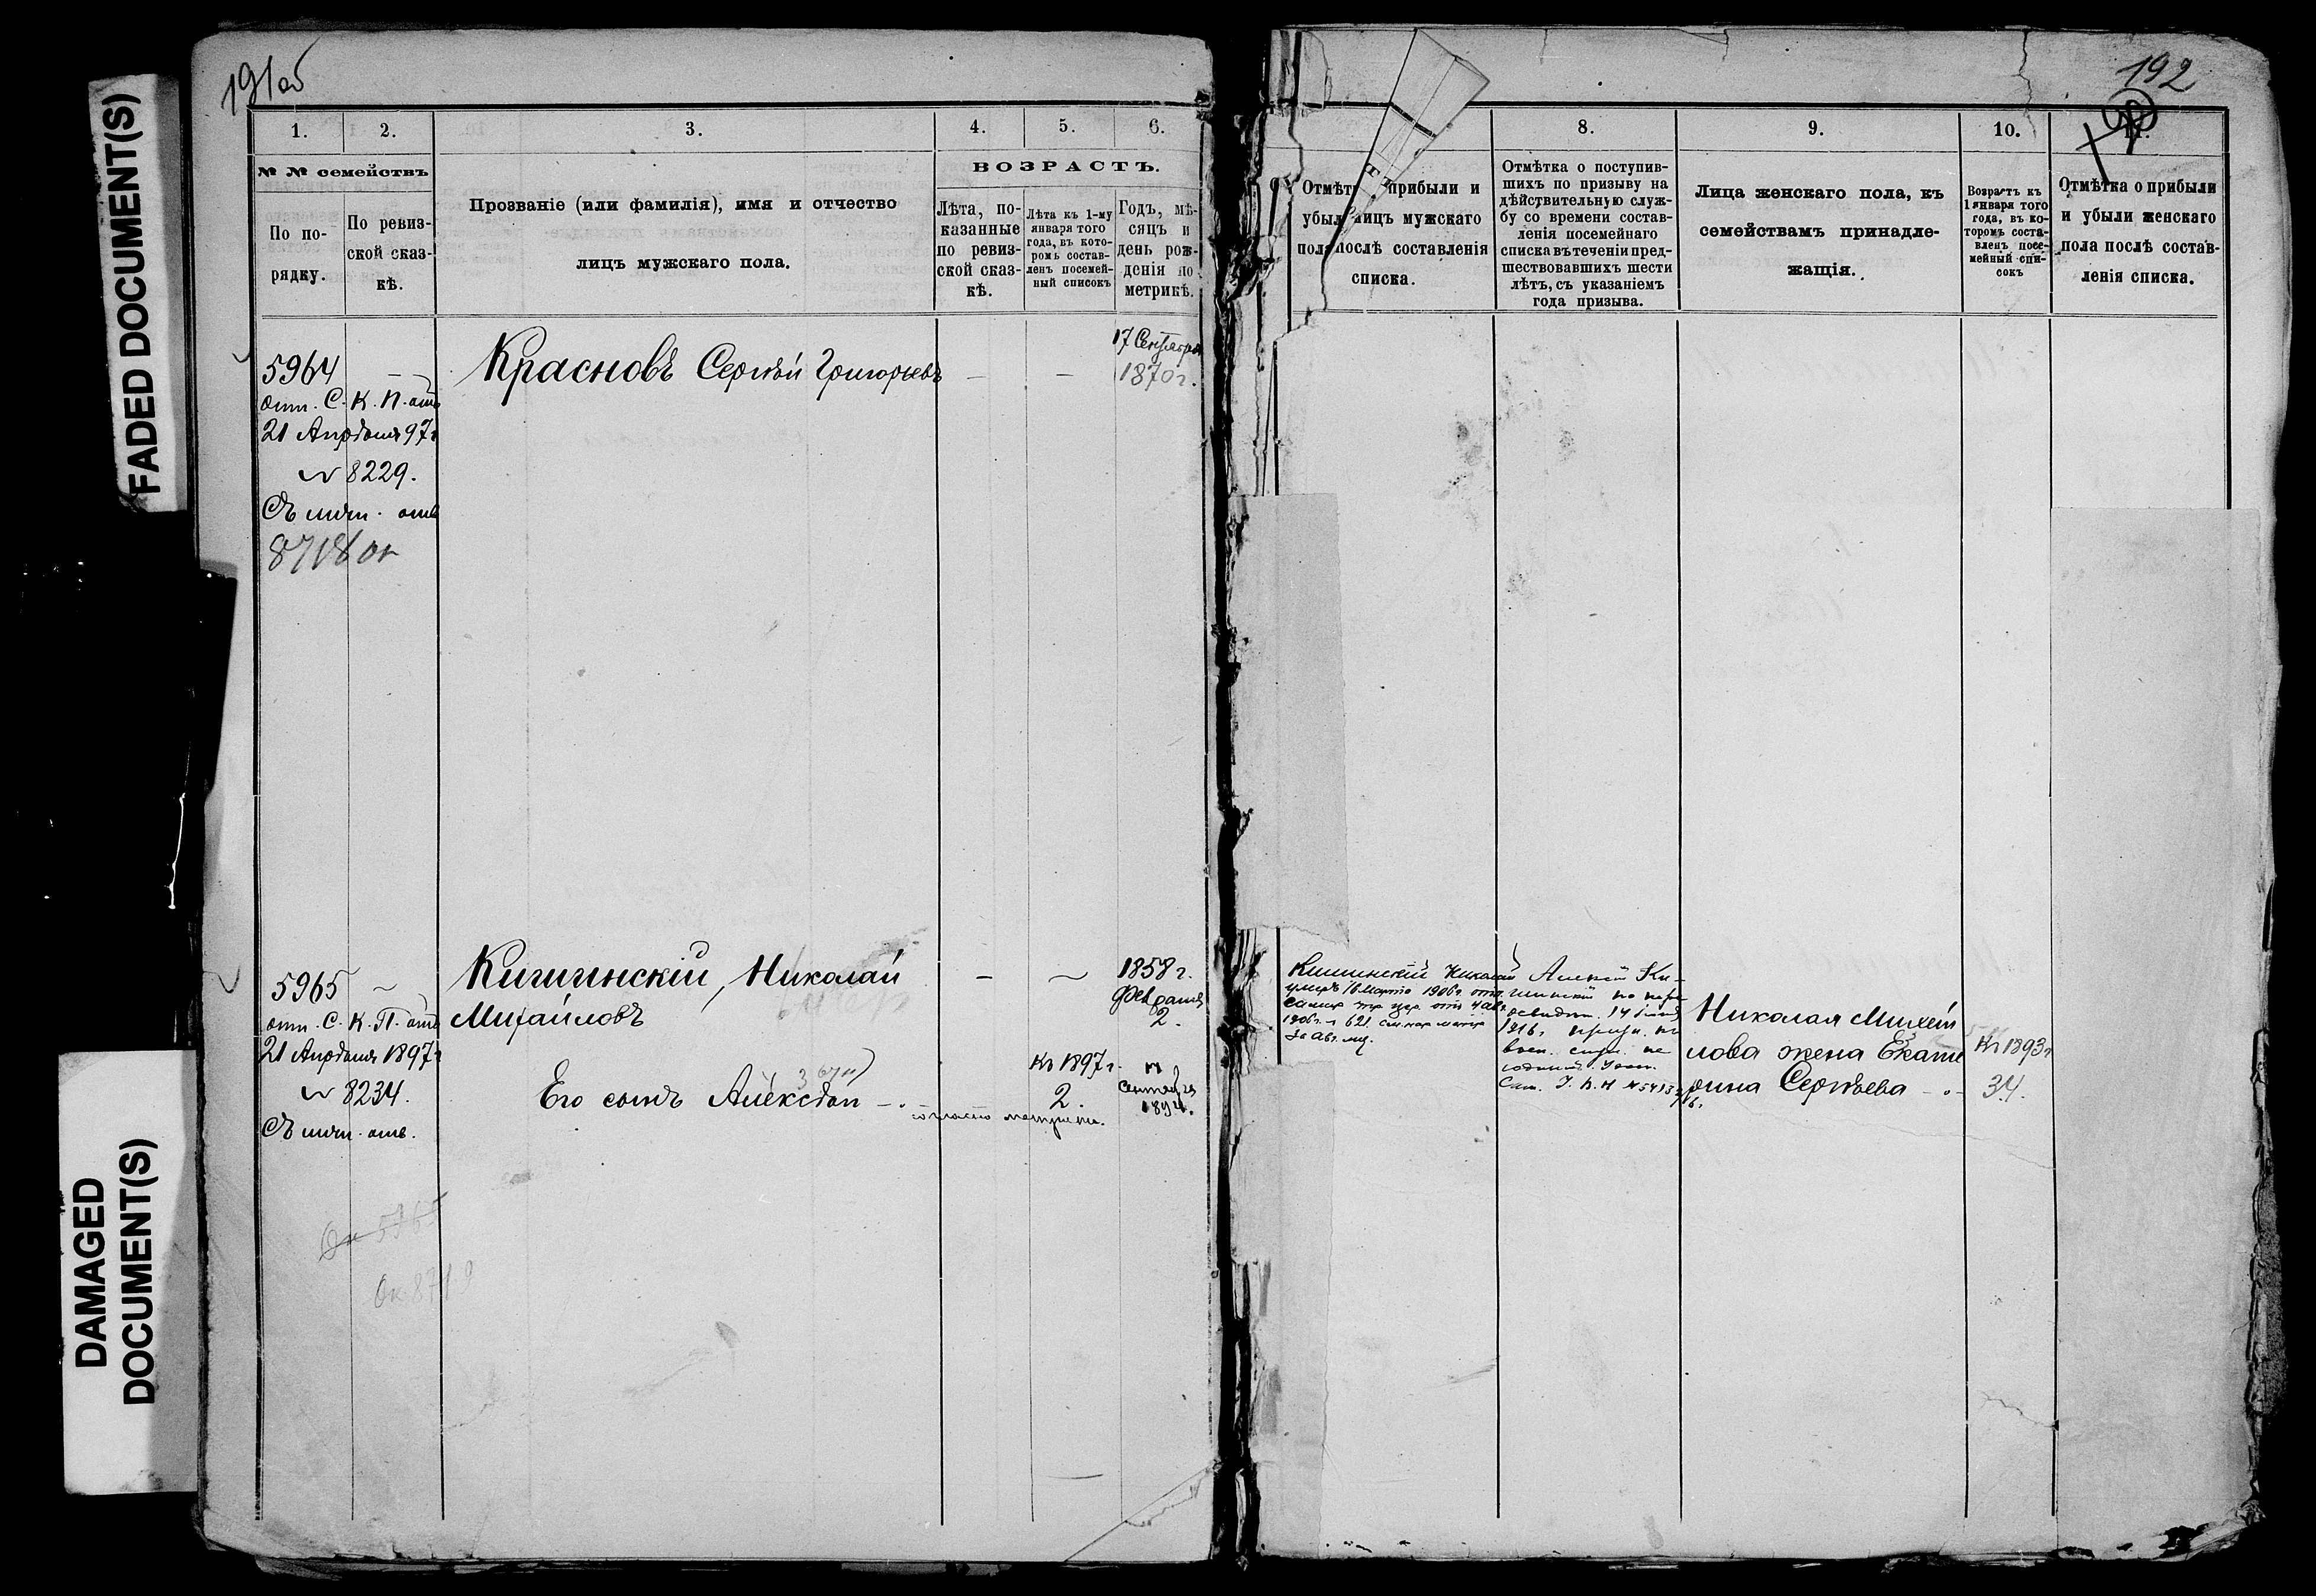 FADED DOCUMENT(S)
DAMAGED
DOCUMENT(S)
191об
1.
2.
3.
4.
5.
6.
№ № семействъ
По по-
рядку.
По ревиз-
ской сказ-
кѣ.
Прозваніе (или фамилія), имя и отчество
лицъ мужскаго пола.
ВОЗРАСТЪ.
Лѣта, по-
казанные
по ревиз-
ской сказ-
кѣ.
Лѣта къ 1-му
января того
года, въ кото-
ромъ состав-
ленъ посемей-
ный списокъ
Годъ, мѣ-
сяцъ и
день рож-
денія по
метрикѣ.
5964
отн. С. К. П. отъ
21 Апрѣля 97 г
№ 8229.
8718 ок
Красновъ Сергѣй Григорьевъ
17 Сентября
1870 г.
5965
отн. С. К. П. отъ
21 Апрѣля 1897 г
№ 8234.
Ок 5965
Ок 8719
Кишинскій, Николай
Михайловъ
1858 г.
Февраля
2.
Его сынъ Алексѣй
къ 1897 г.
2.
Сентября
1894.
согласно метрики.
192
8.
9.
10.
11.
Отмѣтка прибыли и
убыли лицъ мужскаго
пола послѣ составленія
списка.
Отмѣтка о поступив-
шихъ по призыву на
дѣйствительную служ-
бу со времени состав-
ленія посемейнаго
списка въ теченіи пред-
шествовавшихъ шести
лѣтъ, съ указаніемъ
года призыва.
Лица женскаго пола, къ
семействамъ принадле-
жащія.
Возрастъ къ
1 января того
года, въ ко-
торомъ соста-
вленъ посе-
мейный спи-
сокъ
Отмѣтка о прибыли
и убыли женскаго
пола послѣ состав-
ленія списка.
Кишинскій Николай
умеръ 16 Марта 1906 г. отн.
1906 г. № 621
за Авг. мц.
Алексѣй Ки-
шинскій по пере-
освидѣт. 14
1916 г. призн. къ
воен. служ. не
годным.
Николая Михай
лова жена Екате
рина Сергѣева
къ 1893 г
34.